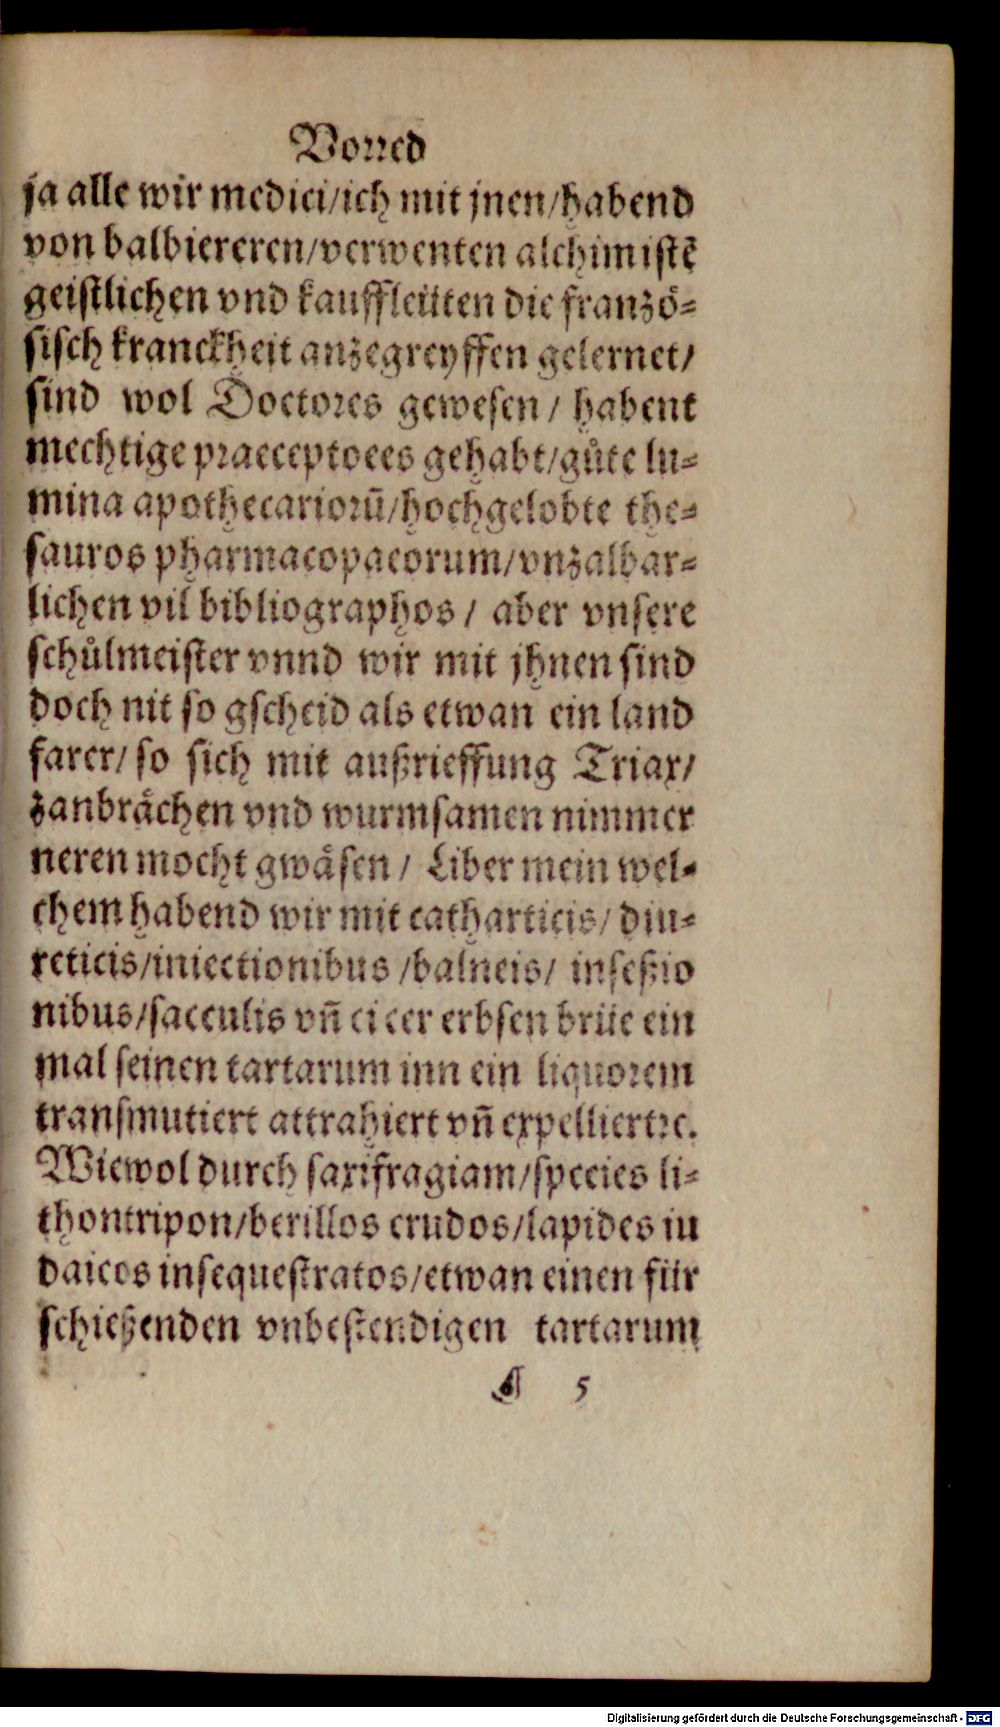 Vorred
ja alle wir medici/ich mit jnen/habend
von balbiereren/verwenten alchimistẽ
geistlichen vnd kauffleüten die franzö⸗
sisch kranckheit anzegreyffen gelernet/
sind wol Doctores gewesen / habent
mechtige praeceptoees gehabt/gůte lu⸗
mina apothecariorũ/hochgelobte the⸗
sauros pharmacopaeorum/vnzalbar⸗
lichen vil bibliographos / aber vnsere
schůlmeister vnnd wir mit jhnen sind
doch nit so gscheid als etwan ein land
farer/ so sich mit außrieffung Triax/
zanbrächen vnd wurmsamen nimmer
neren mocht gwäsen / Liber mein wel⸗
chem habend wir mit catharticis/ diu⸗
reticis/iniectionibus /balneis/ inseßio
nibus/sacculis vñ cicer erbsen brüe ein
mal seinen tartarum inn ein liquorem
transmutiert attrahiert vñ expelliert⁊c.
Wiewol durch saxifragiam/species li⸗
thontripon/berillos crudos/lapides iu
daicos insequestratos/etwan einen für
schießenden vnbestendigen tartarum
A 5
Digitalisierung gefördert durch die Deutsche Forschungsgemeinschaft - DFG